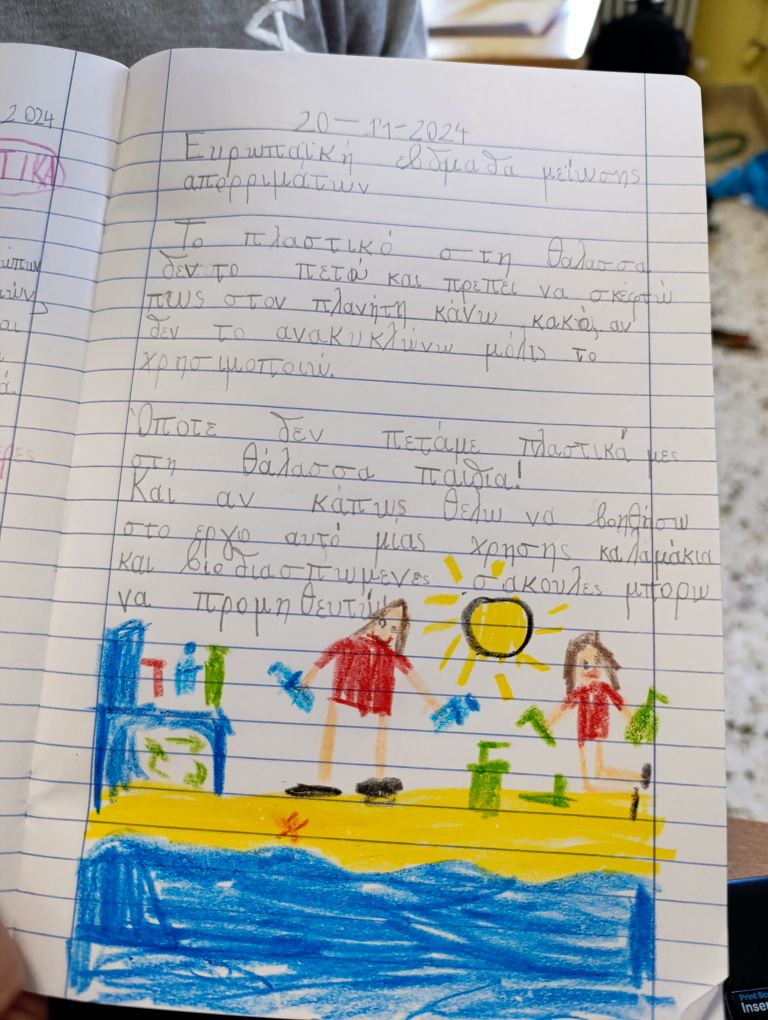 2024
ΤΙΚΑ
20-11-2024
Ευρωπαϊκή εβδμαδα μείωσης
απορριμάτων
Το πλαστικό στη θάλασσα
δεν το πετώ και πρέπει να σκεφτώ
πως στον πλανήτη κάνω κακό, αν
δεν το ανακυκλώνω μόλις το
χρησιμοποιώ.
Όποτε δεν πετάμε πλαστικά μες
στη θάλασσα παιδια!
Και αν κάπως θελω να βοηθήσω
στο εργο αυτό μίας χρησης καλαμάκια
και βιοδιασπωμενες σακουλες μπορω
να προμηθευτώ!
Print Sc
Inser